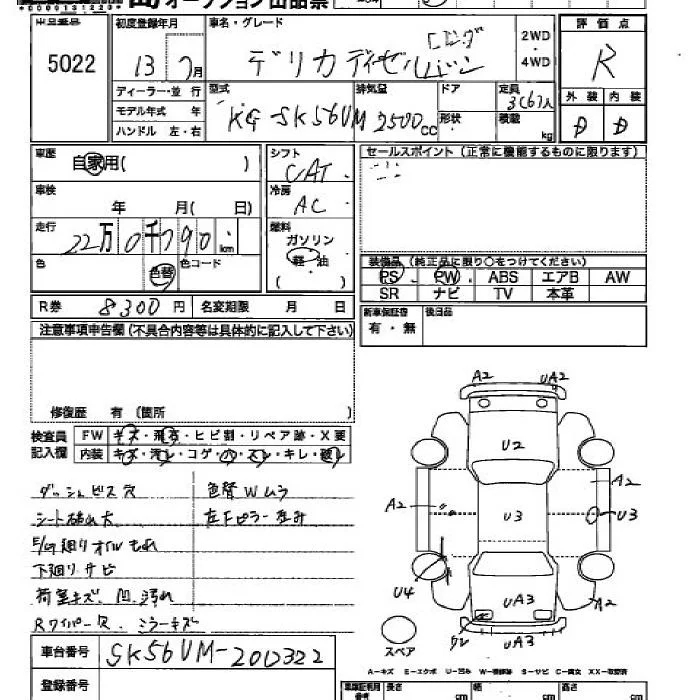 オークション出品票
出品番号 初度登録年月 車名・グレード 2WD・4WD 評価点
5022 13 7月 デリカ ディーゼル ロングバン R
ディーラー・並行 型式 排気量 ドア 定員 外装 内装
モデル年式 年 KG-SK56VM 2500cc 形状 積載 kg D D
ハンドル 左・右 3(6)人
車歴 自家用( ) シフト CAT セールスポイント(正常に機能するものに限ります)
車検 年 月( 日) 冷房 AC
走行 22万0千790km 燃料 ガソリン
軽・油
( )
色 色替 色コード
装備品(純正品に限り○をつけてください)
PS PW ABS エアB AW
SR ナビ TV 本革
R券 8300円 名変期限 月 日
新車保証書 後日品
有・無
注意事項申告欄(不具合内容等は具体的に記入して下さい)
修復歴 有(箇所
検査員 FW キズ・飛石・ヒビ割・リペア跡・X要
記入欄 内装 キズ・汚レ・コゲ・ハ・スレ・キレ・破レ
ダッシュビス穴 色替Wムラ
シート破れ大 左Fピラー歪み
E/G廻りオイルもれ
下廻りサビ
荷室キズ、凹、汚れ
Rワイパー欠、ミラーキズ
車台番号 SK56VM-2012322
登録番号
A2 UA2
U2
A2 A2
U3 U3
U4
UA3 A2
ワレ UA3
スペア
A-キズ E-エクボ U-凹み W-補修跡 S-サビ C-腐食 XX-取替済
長さ cm 幅 cm 高さ cm